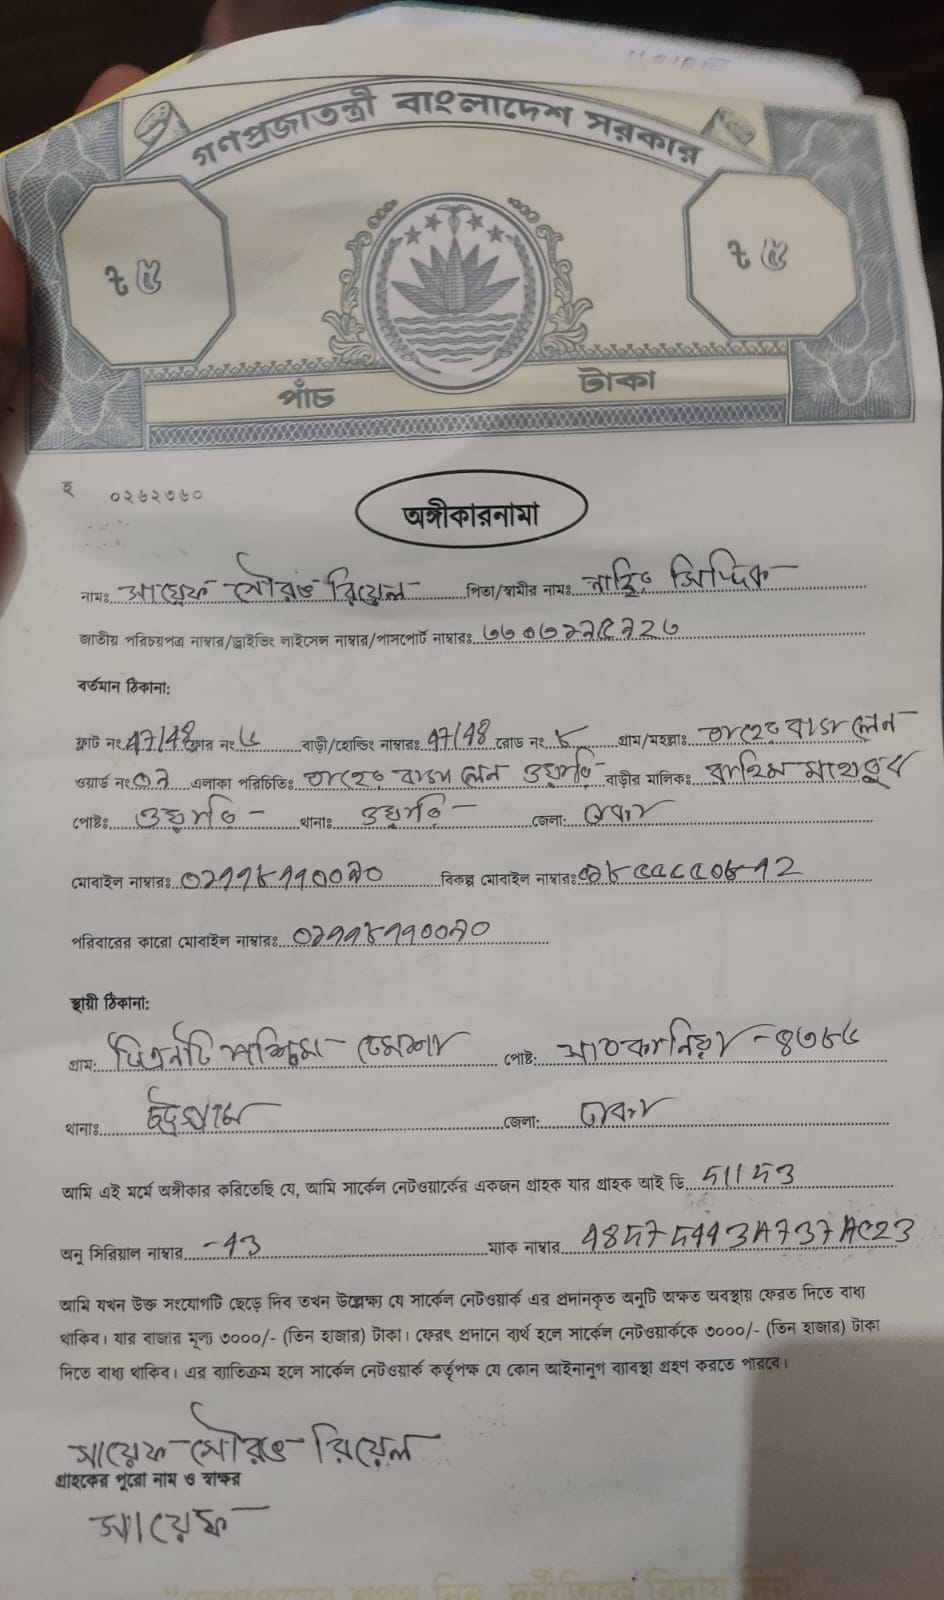 গণপ্রজাতন্ত্রী বাংলাদেশ সরকার
৳ ৫ ৳ ৫
পাঁচ টাকা
হ ০২৬২৩৬০
অঙ্গীকারনামা
নামঃ সায়েফ সৌরভ রিয়েল পিতা/স্বামীর নামঃ সিদ্দিক
জাতীয় পরিচয়পত্র নাম্বার/ড্রাইভিং লাইসেন্স নাম্বার/পাসপোর্ট নাম্বারঃ
বর্তমান ঠিকানা:
ফ্লাট নং 47/48 ফ্লোর নং ৬ বাড়ী/হোল্ডিং নাম্বারঃ 47/48 রোড নং ৮ গ্রাম/মহল্লাঃ লেন
ওয়ার্ড নং ০৯ এলাকা পরিচিতিঃ লেন বাড়ীর মালিকঃ
পোষ্টঃ থানাঃ জেলা: ঢাকা
মোবাইল নাম্বারঃ ০১৭৭৮৭৭০০৯০ বিকল্প মোবাইল নাম্বারঃ
পরিবারের কারো মোবাইল নাম্বারঃ ০১৭৭৮৭৭০০৯০
স্থায়ী ঠিকানা:
গ্রাম: পশ্চিম ঢেমশা পোষ্ট: সাতকানিয়া - ৪৩৮৬
থানাঃ চট্টগ্রাম জেলা: ঢাকা
আমি এই মর্মে অঙ্গীকার করিতেছি যে, আমি সার্কেল নেটওয়ার্কের একজন গ্রাহক যার গ্রাহক আই ডি 51153
অনু সিরিয়াল নাম্বার -43 ম্যাক নাম্বার
আমি যখন উক্ত সংযোগটি ছেড়ে দিব তখন উল্লেক্ষ্য যে সার্কেল নেটওয়ার্ক এর প্রদানকৃত অনুটি অক্ষত অবস্থায় ফেরত দিতে বাধ্য
থাকিব। যার বাজার মূল্য ৩০০০/- (তিন হাজার) টাকা। ফেরৎ প্রদানে ব্যর্থ হলে সার্কেল নেটওয়ার্ককে ৩০০০/- (তিন হাজার) টাকা
দিতে বাধ্য থাকিব। এর ব্যাতিক্রম হলে সার্কেল নেটওয়ার্ক কর্তৃপক্ষ যে কোন আইনানুগ ব্যাবস্থা গ্রহণ করতে পারবে।
সায়েফ সৌরভ রিয়েল
গ্রাহকের পুরো নাম ও স্বাক্ষর
সায়েফ